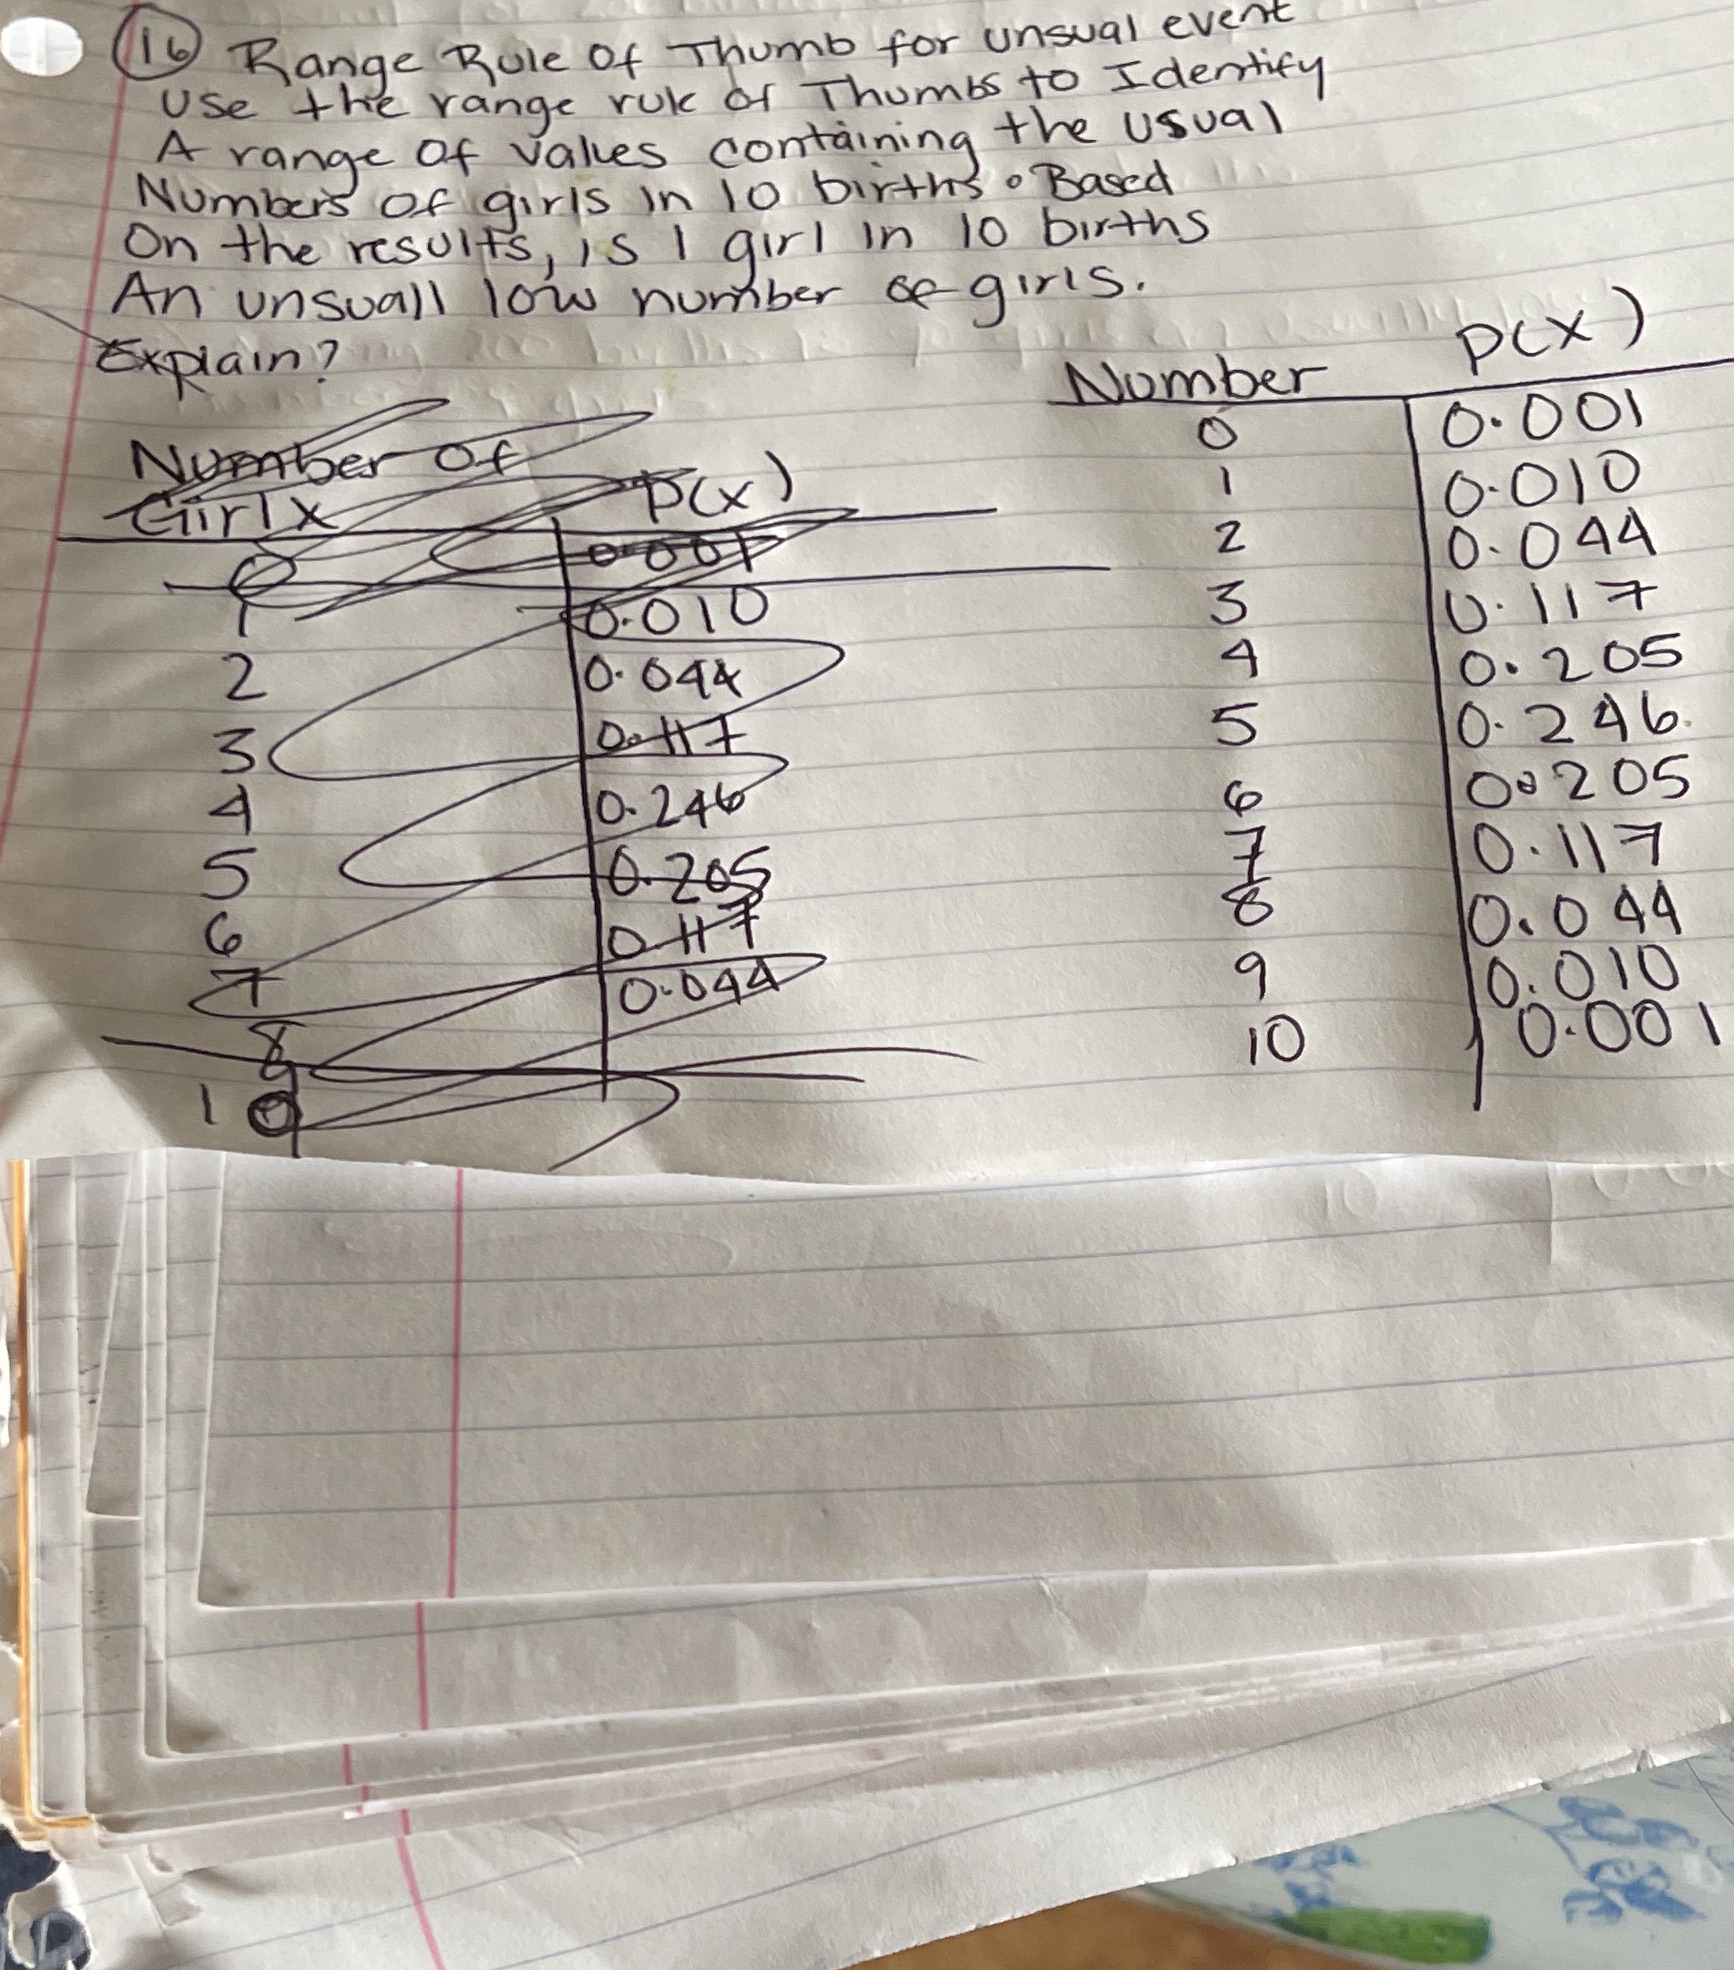 16 Range Rule Of Thumb for unsual event
Use the range rule of Thumbs to Identify
A range of values containing the usual
Numbers of girls in 10 births. Based
On the results, is 1 girl in 10 births
An unsuall low number of girls.
Explain?
Number Of
Girl x P(x)
0 0.001
1 0.010
2 0.044
3 0.117
4 0.246
5 0.205
6 0.117
7 0.044
8
9
10
Number P(x)
0 0.001
1 0.010
2 0.044
3 0.117
4 0.205
5 0.246
6 0.205
7 0.117
8 0.044
9 0.010
10 0.001